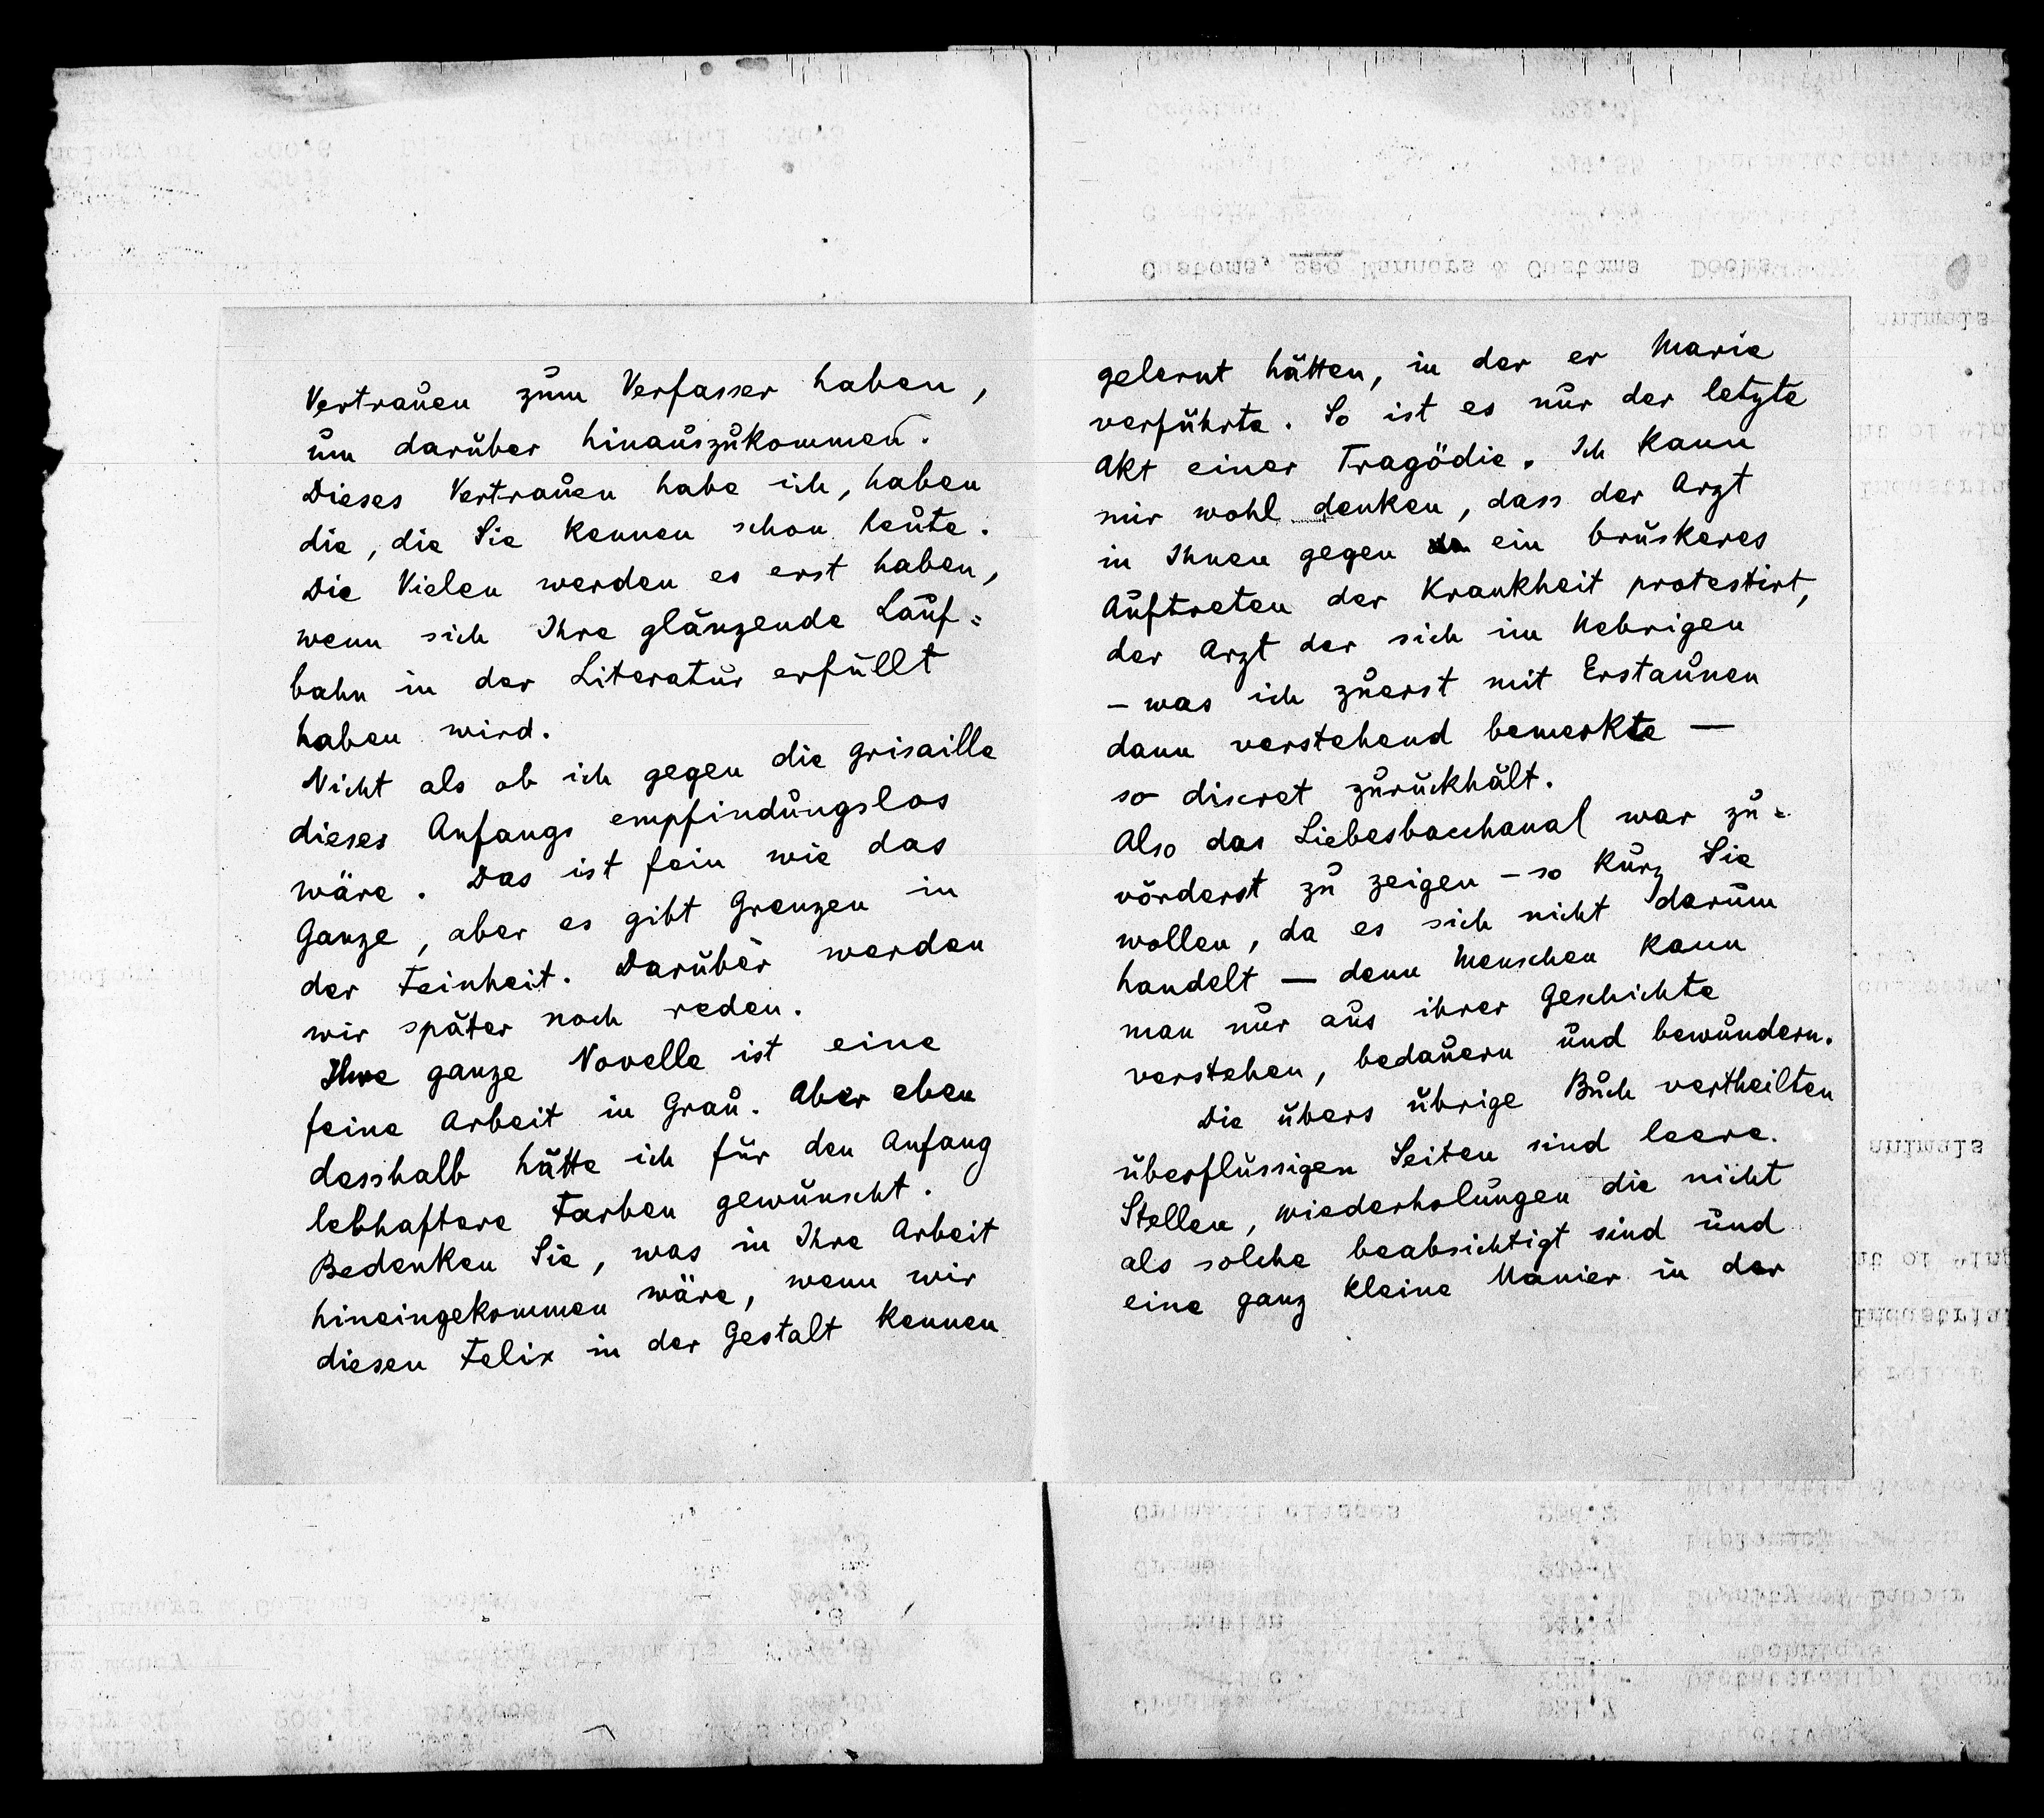 Vertrauen zum Verfasser haben,
um darüber hinauszukommen.
Dieses Vertrauen habe ich, haben
die, die Sie kennen schon heute.
Die Vielen werden es erst haben,
wenn sich Ihre glänzende Lauf=
bahn in der Literatur erfüllt
haben wird.
Nicht als ob ich gegen die grisaille
dieses Anfangs empfindungslos
wäre. Das ist fein wie das
Ganze, aber es gibt Grenzen in
der Feinheit. Darüber werden
wir später noch reden.
Ihre ganze Novelle ist eine
feine Arbeit in Grau. Aber eben
desshalb hätte ich für den Anfang
lebhaftere Farben gewünscht.
Bedenken Sie, was in Ihre Arbeit
hineingekommen wäre, wenn wir
diesen Felix in der Gestalt kennen
gelernt hätten, in der er Marie
verführte. So ist es nur der letzte
Akt einer Tragödie. Ich kann
mir wohl denken, dass der Arzt
in Ihnen gegen ein brüskeres
Auftreten der Krankheit protestirt,
der Arzt der sich im Uebrigen
– was ich zuerst mit Erstaunen
dann verstehend bemerkte —
so discret zurückhält.
Also das Liebesbacchanal war zu=
vörderst zu zeigen – so kurz Sie
wollen, da es sich nicht darum
handelt — denn Menschen kann
man nur aus ihrer Geschichte
verstehen, bedauern und bewundern.
Die übers übrige Buch vertheilten
überflüssigen Seiten sind leere.
Stellen, wiederholungen die nicht
als solche beabsichtigt sind und
eine ganz kleine Manier in der